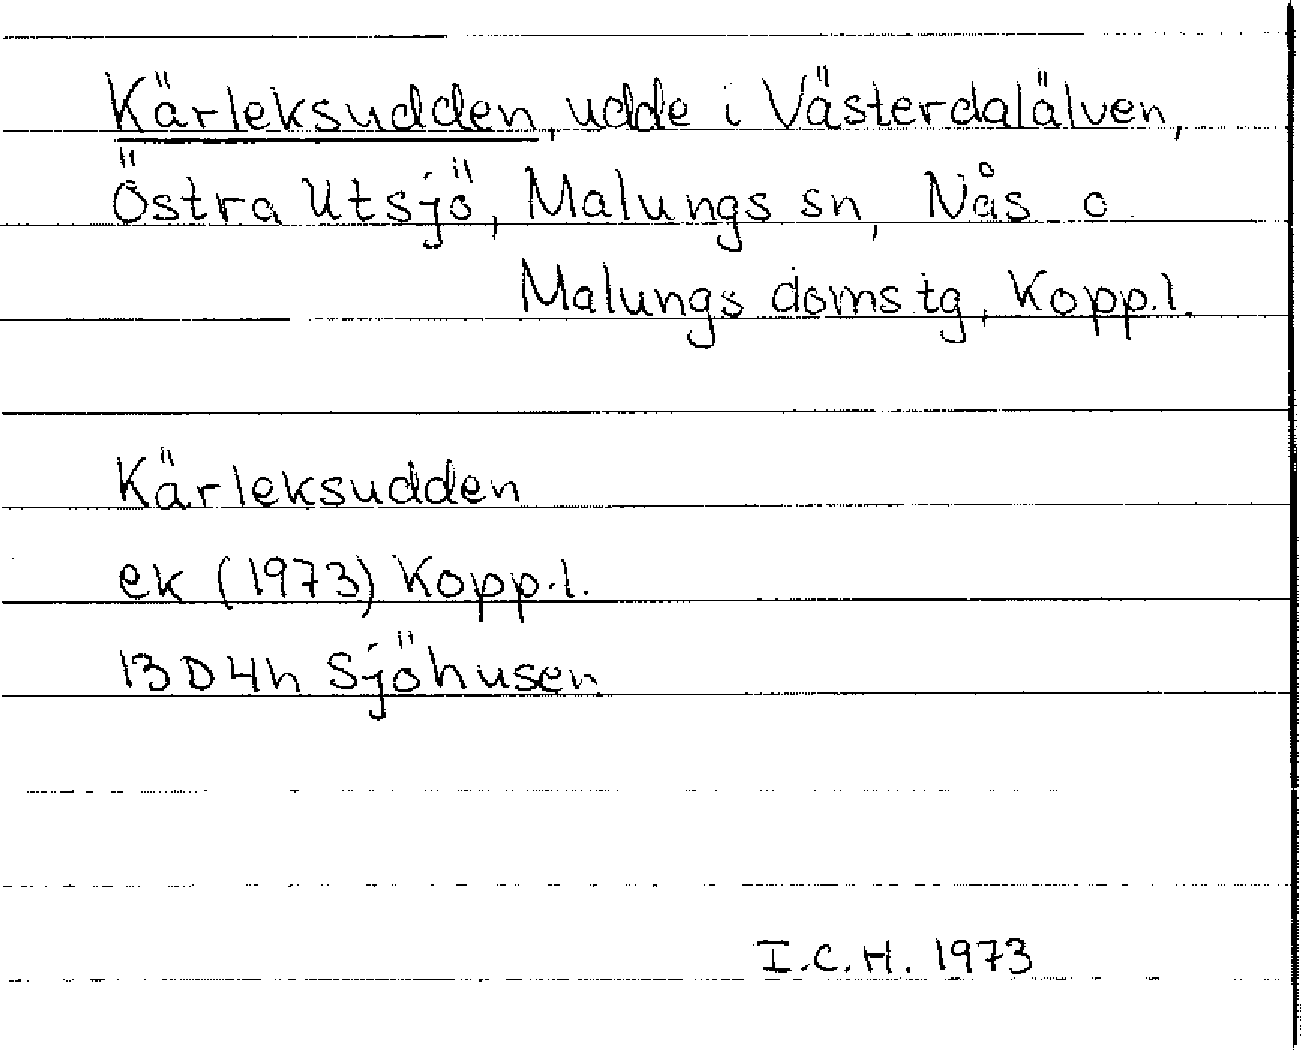 Kärleksudden, udde i Västerdalälven,
Östra Utsjö, Malungs sn, Nås o
Malungs domstg, Kopp.l.
Kärleksudden
ek (1973) Kopp.l.
13D4h Sjöhusen
I.C.H. 1973